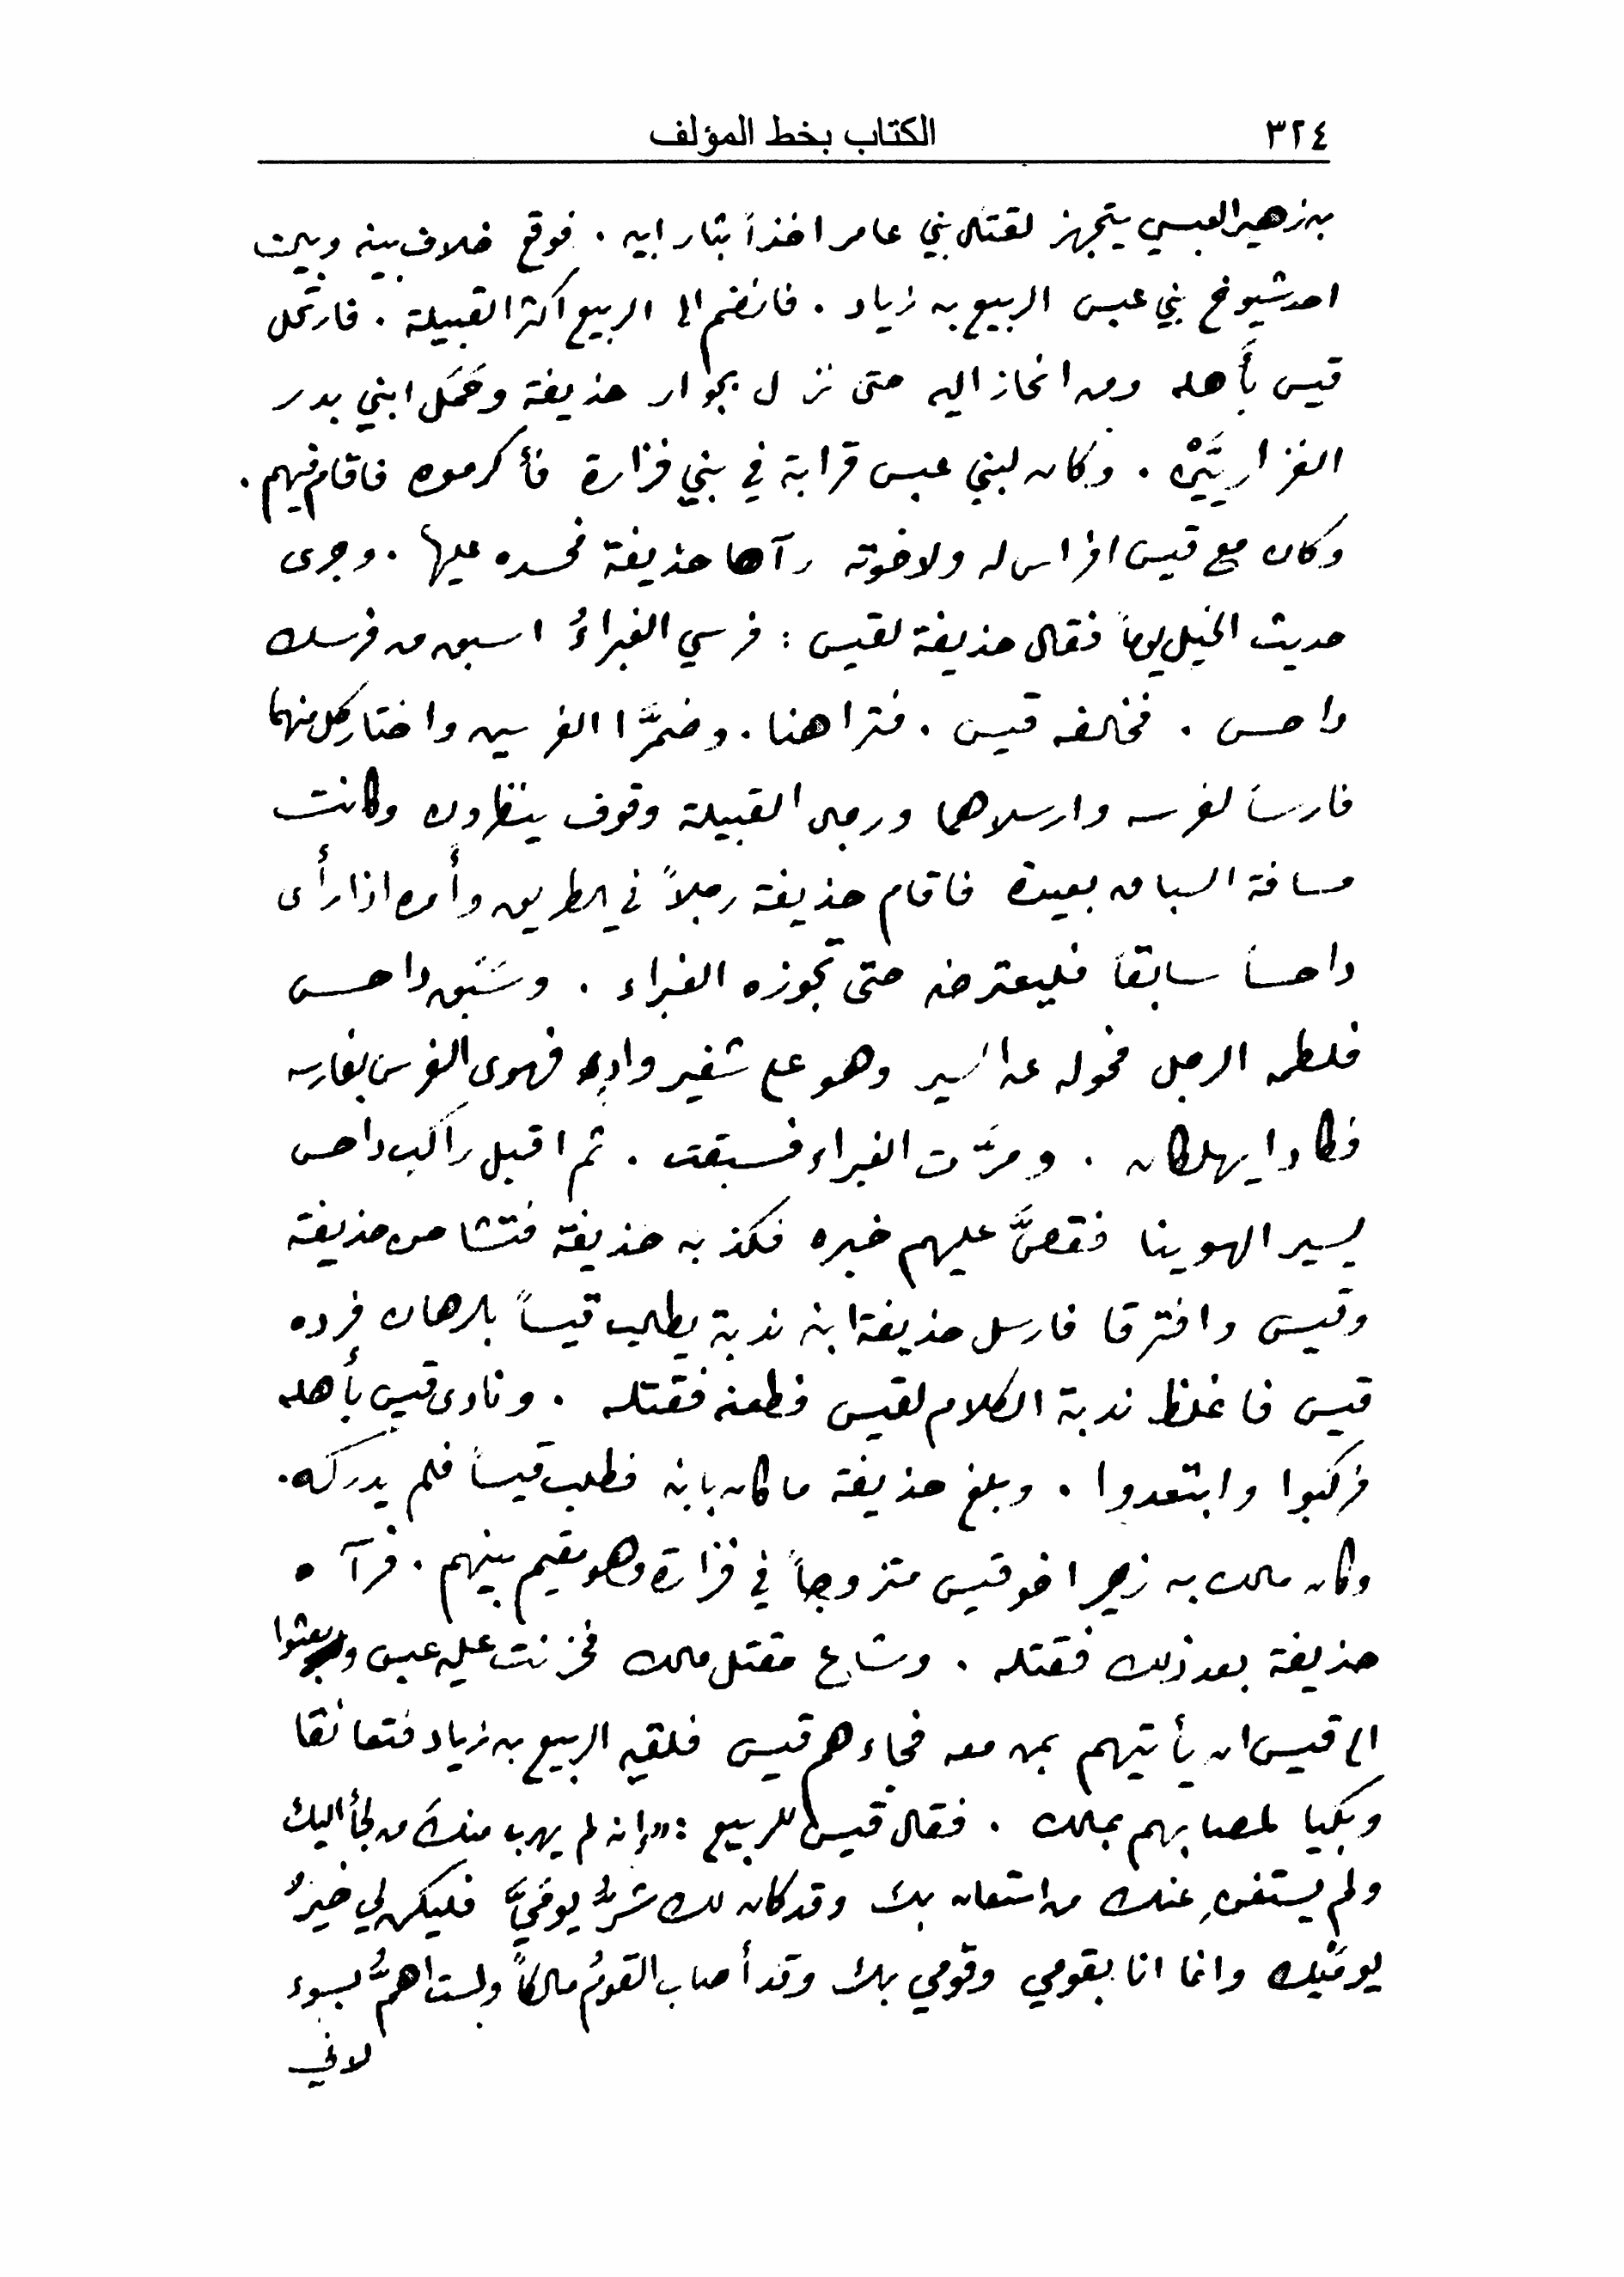 ٣٢٤ الكتاب بخط المؤلف
بن زهير العبسي يتجهز لقتال بني عامر اخذاً بثار ابيه . فوقع خلاف بينه وبين
احد شيوخ بني عبس الربيع بن زياد . فانضم الى الربيع اكثر القبيلة . فارتحل
قيس بأهله ومن انحاز اليه حتى نزل بجوار حذيفة وحَمَل ابني بدر
الفزاريَّيْن . وكان لبني عبس قرابة في بني فزارة فأكرموه فاقام فيهم .
وكان مع قيس افراس له ولاخوته رآها حذيفة فحسده عليها . وجرى
حديث الخيل يوماً فقال حذيفة لقيس : فرسي الغبراءُ اسبق من فرسك
داحس . فخالفه قيس . فتراهنا . وضمَّرا الفرسين واختار كل منهما
فارساً لفرسه وارسلاهما ورجال القبيلة وقوف ينظرون وكانت
مسافة السباق بعيدة فاقام حذيفة رجلاً في الطريق وأمره اذا رأى
داحساً سابقاً فليعترضه حتى تجوزه الغبراء . وسَبَق داحس
فلطمه الرجل فحوله عن السير وهو على شفير وادٍ فهوى الفرس بفارسه
فكادا يهلكان . ومرَّت الغبراء فسبقت . ثم اقبل راكب داحس
يسير الهوينا فقصَّ عليهم خبره فكذبه حذيفة فتشاحن حذيفة
وقيس وافترقا فارسل حذيفة ابنه ندبة يطالب قيساً بالرهان فرده
قيس فاغلظ ندبة الكلام لقيس فطعنه فقتله . ونادى قيس بأهله
فركبوا وابتعدوا . وبلغ حذيفة ما كان بابنه فطلب قيساً فلم يدركه .
وكان مالك بن زهير اخو قيس متزوجاً في فزارة وهو مقيم بينهم . فرآه
حذيفة بعد ذلك فقتله . وشاع مقتل مالك فحزنت عليه عبس وبعثوا
الى قيس ان يأتيهم بمن معه فجاءهم قيس فلقيه الربيع بن زياد فتعانقا
وبكيا لمصابهم بمالك . فقال قيس للربيع : «إنه لم يهرب منك من لجأ اليك
ولم يستغنِ عنك من استعان بك وقد كان لك شرُّ يوميَّ فليكن لي خيرُ
يوميْك وانما انا بقومي وقومي بك وقد أصاب القومُ مالكاً ولست اهمُّ بسوء
لاني